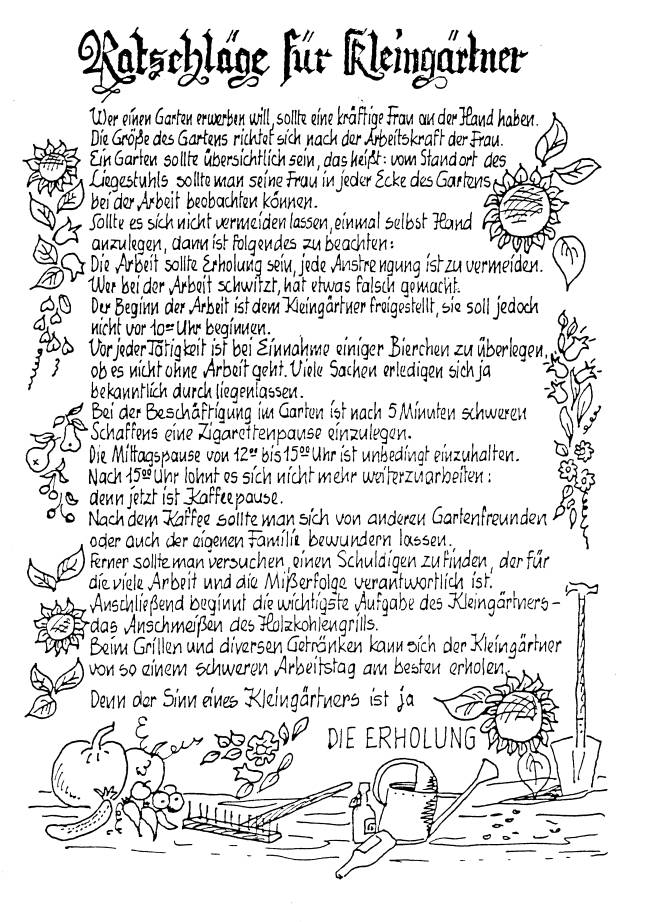 Ratschläge für Kleingärtner
Wer einen Garten erwerben will, sollte eine kräftige Frau an der Hand haben.
Die Größe des Gartens richtet sich nach der Arbeitskraft der Frau.
Ein Garten sollte übersichtlich sein, das heißt: vom Standort des
Liegestuhls sollte man seine Frau in jeder Ecke des Gartens
bei der Arbeit beobachten können.
Sollte es sich nicht vermeiden lassen, einmal selbst Hand
anzulegen, dann ist folgendes zu beachten:
Die Arbeit sollte Erholung sein, jede Anstrengung ist zu vermeiden.
Wer bei der Arbeit schwitzt, hat etwas falsch gemacht.
Der Beginn der Arbeit ist dem Kleingärtner freigestellt, sie soll jedoch
nicht vor 10⁰⁰ Uhr beginnen.
Vor jeder Tätigkeit ist bei Einnahme einiger Bierchen zu überlegen,
ob es nicht ohne Arbeit geht. Viele Sachen erledigen sich ja
bekanntlich durch liegenlassen.
Bei der Beschäftigung im Garten ist nach 5 Minuten schweren
Schaffens eine Zigarettenpause einzulegen.
Die Mittagspause von 12⁰⁰ bis 15⁰⁰ Uhr ist unbedingt einzuhalten.
Nach 15⁰⁰ Uhr lohnt es sich nicht mehr weiterzuarbeiten:
denn jetzt ist Kaffeepause.
Nach dem Kaffee sollte man sich von anderen Gartenfreunden
oder auch der eigenen Familie bewundern lassen.
Ferner sollte man versuchen, einen Schuldigen zu finden, der für
die viele Arbeit und die Mißerfolge verantwortlich ist.
Anschließend beginnt die wichtigste Aufgabe des Kleingärtners –
das Anschmeißen des Holzkohlengrills.
Beim Grillen und diversen Getränken kann sich der Kleingärtner
von so einem schweren Arbeitstag am besten erholen.
Denn der Sinn eines Kleingärtners ist ja
DIE ERHOLUNG